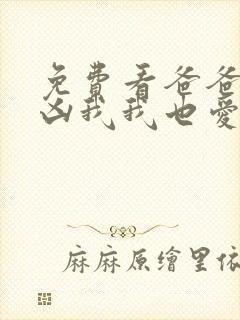 免費看爸爸
凶我我也愛
麻麻原繪里依